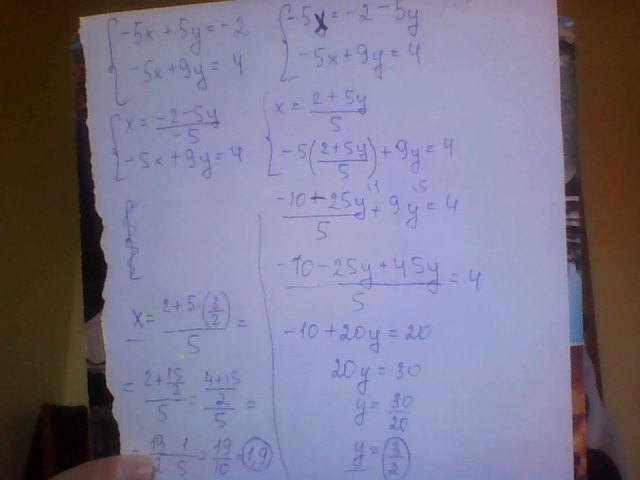 {-5x + 5y = -2
{-5x + 9y = 4
{-5x = -2 - 5y
{-5x + 9y = 4
{x = (-2 - 5y)/-5
{-5x + 9y = 4
{x = (2 + 5y)/5
{-5((2 + 5y)/5) + 9y = 4
(-10 - 25y)/5 + 9y = 4
(-10 - 25y + 45y)/5 = 4
-10 + 20y = 20
20y = 30
y = 30/20
y = 3/2
x = (2 + 5·(3/2))/5 =
= (2 + 15/2)/5 = ((4 + 15)/2)/5 =
= 19/2 1/5 = 19/10 = 1,9